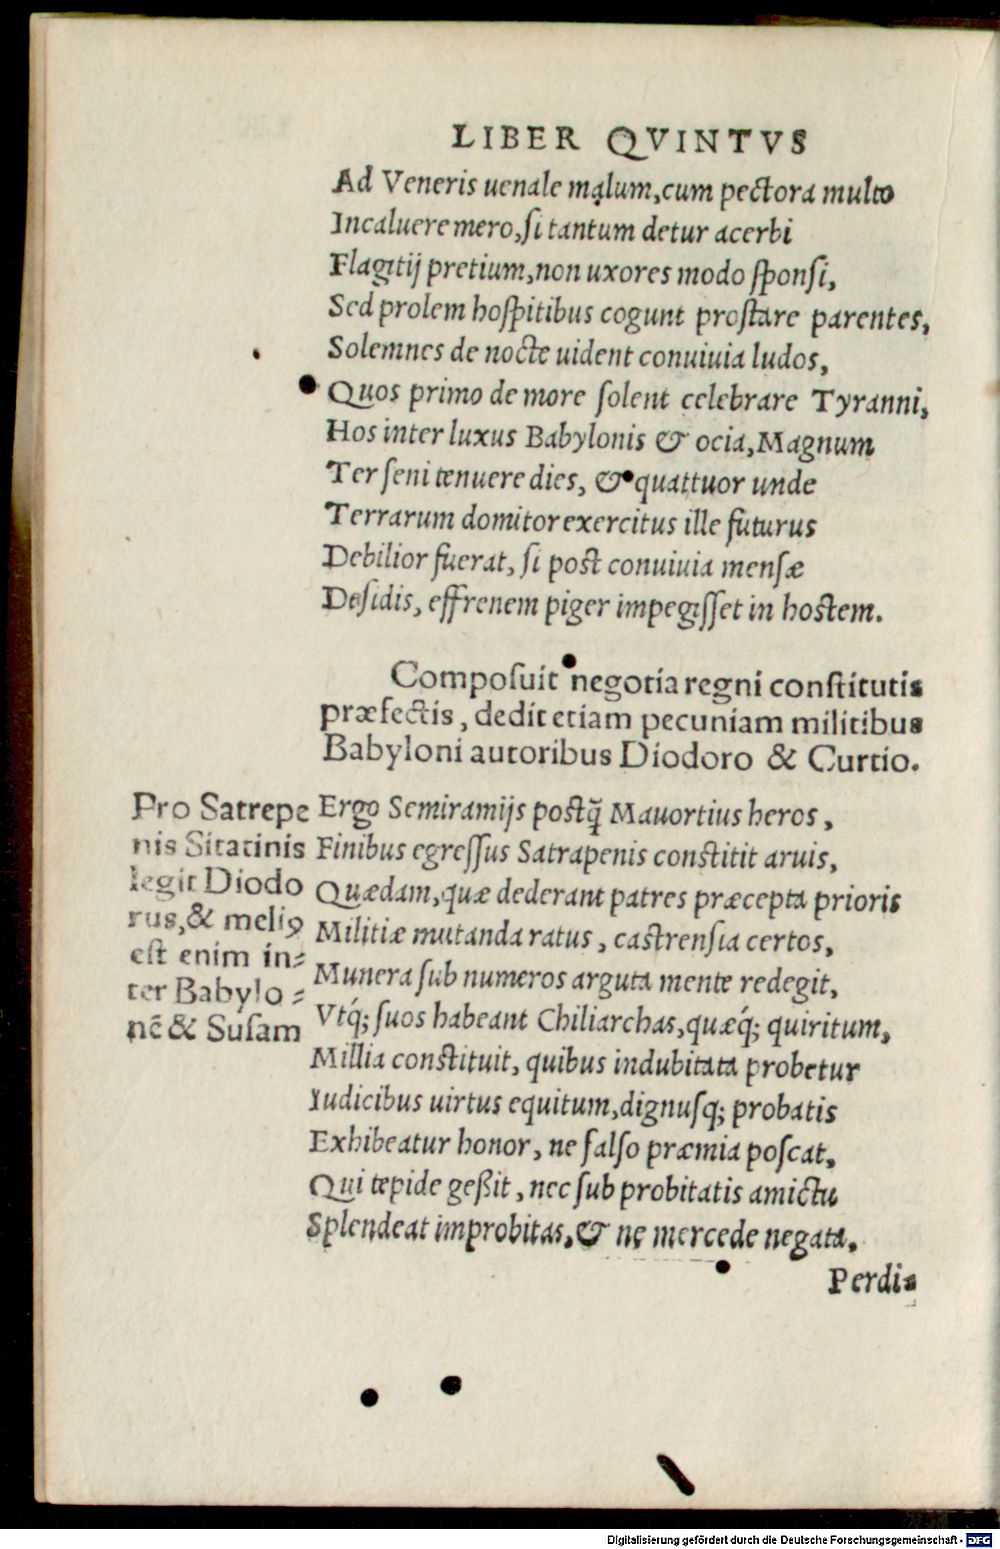 LIBER QVINTVS
Ad Veneris uenale malum, cum pectora multo
Incaluere mero, si tantum detur acerbi
Flagitij pretium, non uxores modo sponsi,
Sed prolem hospitibus cogunt prostare parentes,
Solemnes de nocte uident conuiuia ludos,
Quos primo de more solent celebrare Tyranni,
Hos inter luxus Babylonis & ocia, Magnum
Ter seni tenuere dies, & quattuor unde
Terrarum domitor exercitus ille futurus
Debilior fuerat, si post conuiuia mensæ
Desidis, effrenem piger impegisset in hostem.
Composuit negotia regni constitutis
præfectis, dedit etiam pecuniam militibus
Babyloni autoribus Diodoro & Curtio.
Pro Satrepe
nis Sitacinis
legit Diodo
rus, & meliꝰ
est enim in⸗
ter Babylo⸗
nē & Susam
Ergo Semiramijs postq̃ Mauortius heros,
Finibus egressus Satrapenis constitit aruis,
Quædam, quæ dederant patres præcepta prioris
Militiæ mutanda ratus, castrensia certos,
Munera sub numeros arguta mente redegit,
Vtq́; suos habeant Chiliarchas, quæq́; quiritum,
Millia constituit, quibus indubitata probetur
Iudicibus uirtus equitum, dignusq; probatis
Exhibeatur honor, ne falso præmia poscat,
Qui tepide geßit, nec sub probitatis amictu
Splendeat improbitas, & ne mercede negata,
Perdi⸗
Digitalisierung gefördert durch die Deutsche Forschungsgemeinschaft - DFG